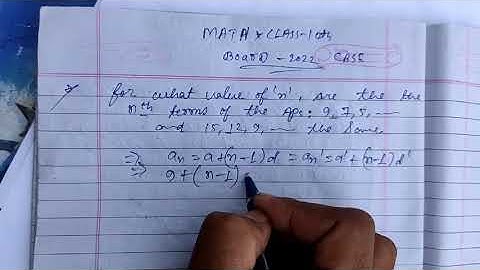 MATH * CLASS-10th
BOARD - 2022 CBSE
for what value of 'n', are the the
nth terms of the APs: 9, 7, 5, ---
and 15, 12, 9, --- the same
⇒ an = a+(n-1)d = an' = a' + (n-1)d'
⇒ 9+(n-1)